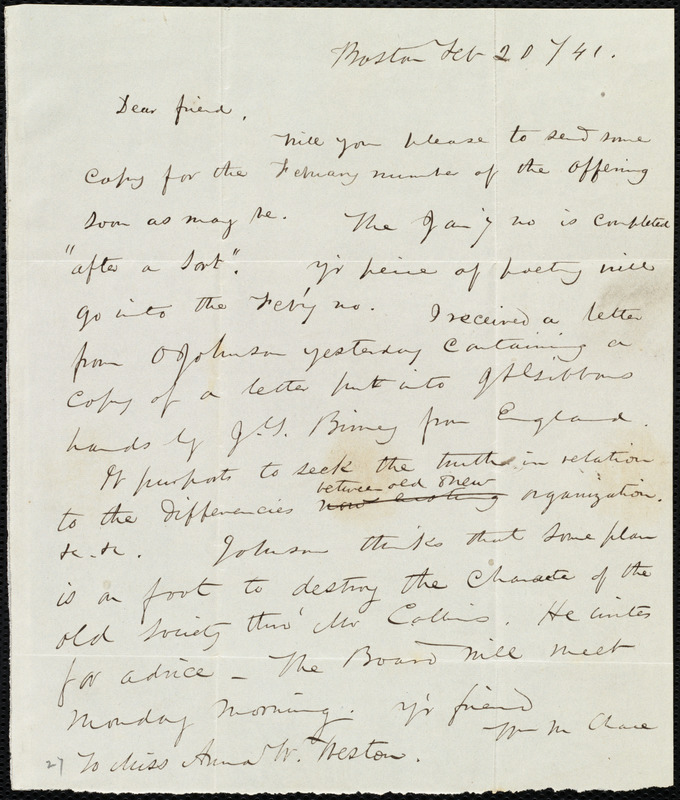 Boston Feb 20th/41.
Dear friend,
Will you please to send some
copy for the February number of the Offering
soon as may be. The Jan'y no is completed
"after a sort". Yr peice of poetry will
go into the Feb'y no. I received a letter
from O Johnson yesterday containing a
copy of a letter put into J S Gibbons
hands by J. G. Birney from England.
It purports to seek the truth in relation
between old & new
to the differencies now existing organization.
&c. &c. Johnson thinks that some plan
is on foot to destroy the Character of the
old Society thro' Mr Collins. He writes
for advice - The Board will meet
Monday Morning. Yr friend
Wm M Chace
27 To Miss Anna W. Weston.